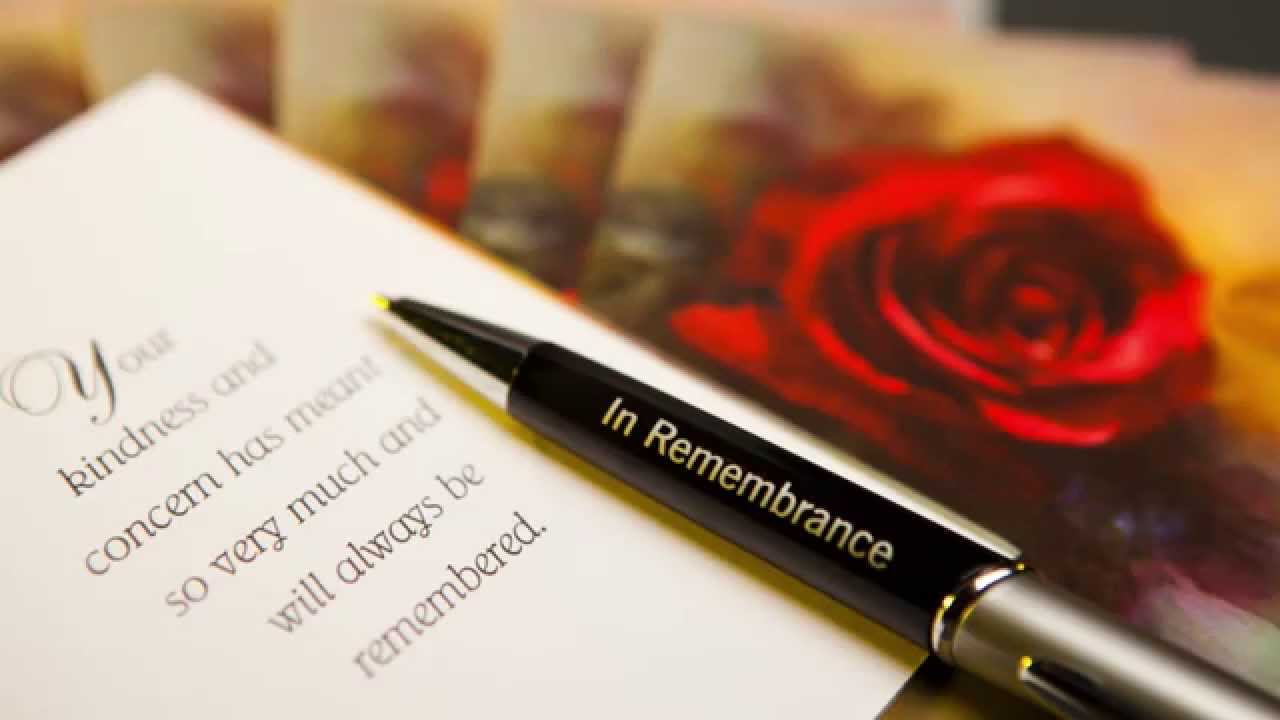 Your
kindness and
concern has meant
so very much and
will always be
remembered.
In Remembrance